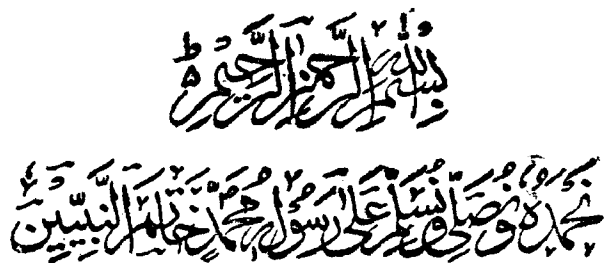 بِسْمِ اللّٰهِ الرَّحْمٰنِ الرَّحِيْمِ ط ۵
نَحْمَدُهٗ وَنُصَلِّیْ وَنُسَلِّمُ عَلٰی رَسُوْلِهٖ مُحَمَّدٍ خَاتَمِ النَّبِیِّیْنَ